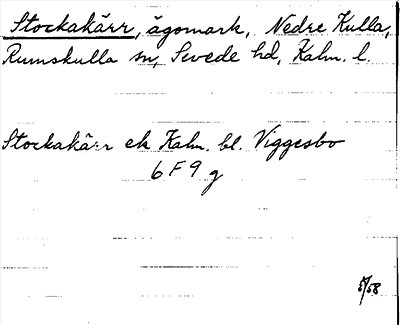 Stockakärr, ägomark, Nedre Kulla,
Rumskulla sn, Sevede hd, Kalm. l.
Stockakärr ek Kalm. bl. Viggesbo
6 F 9 g